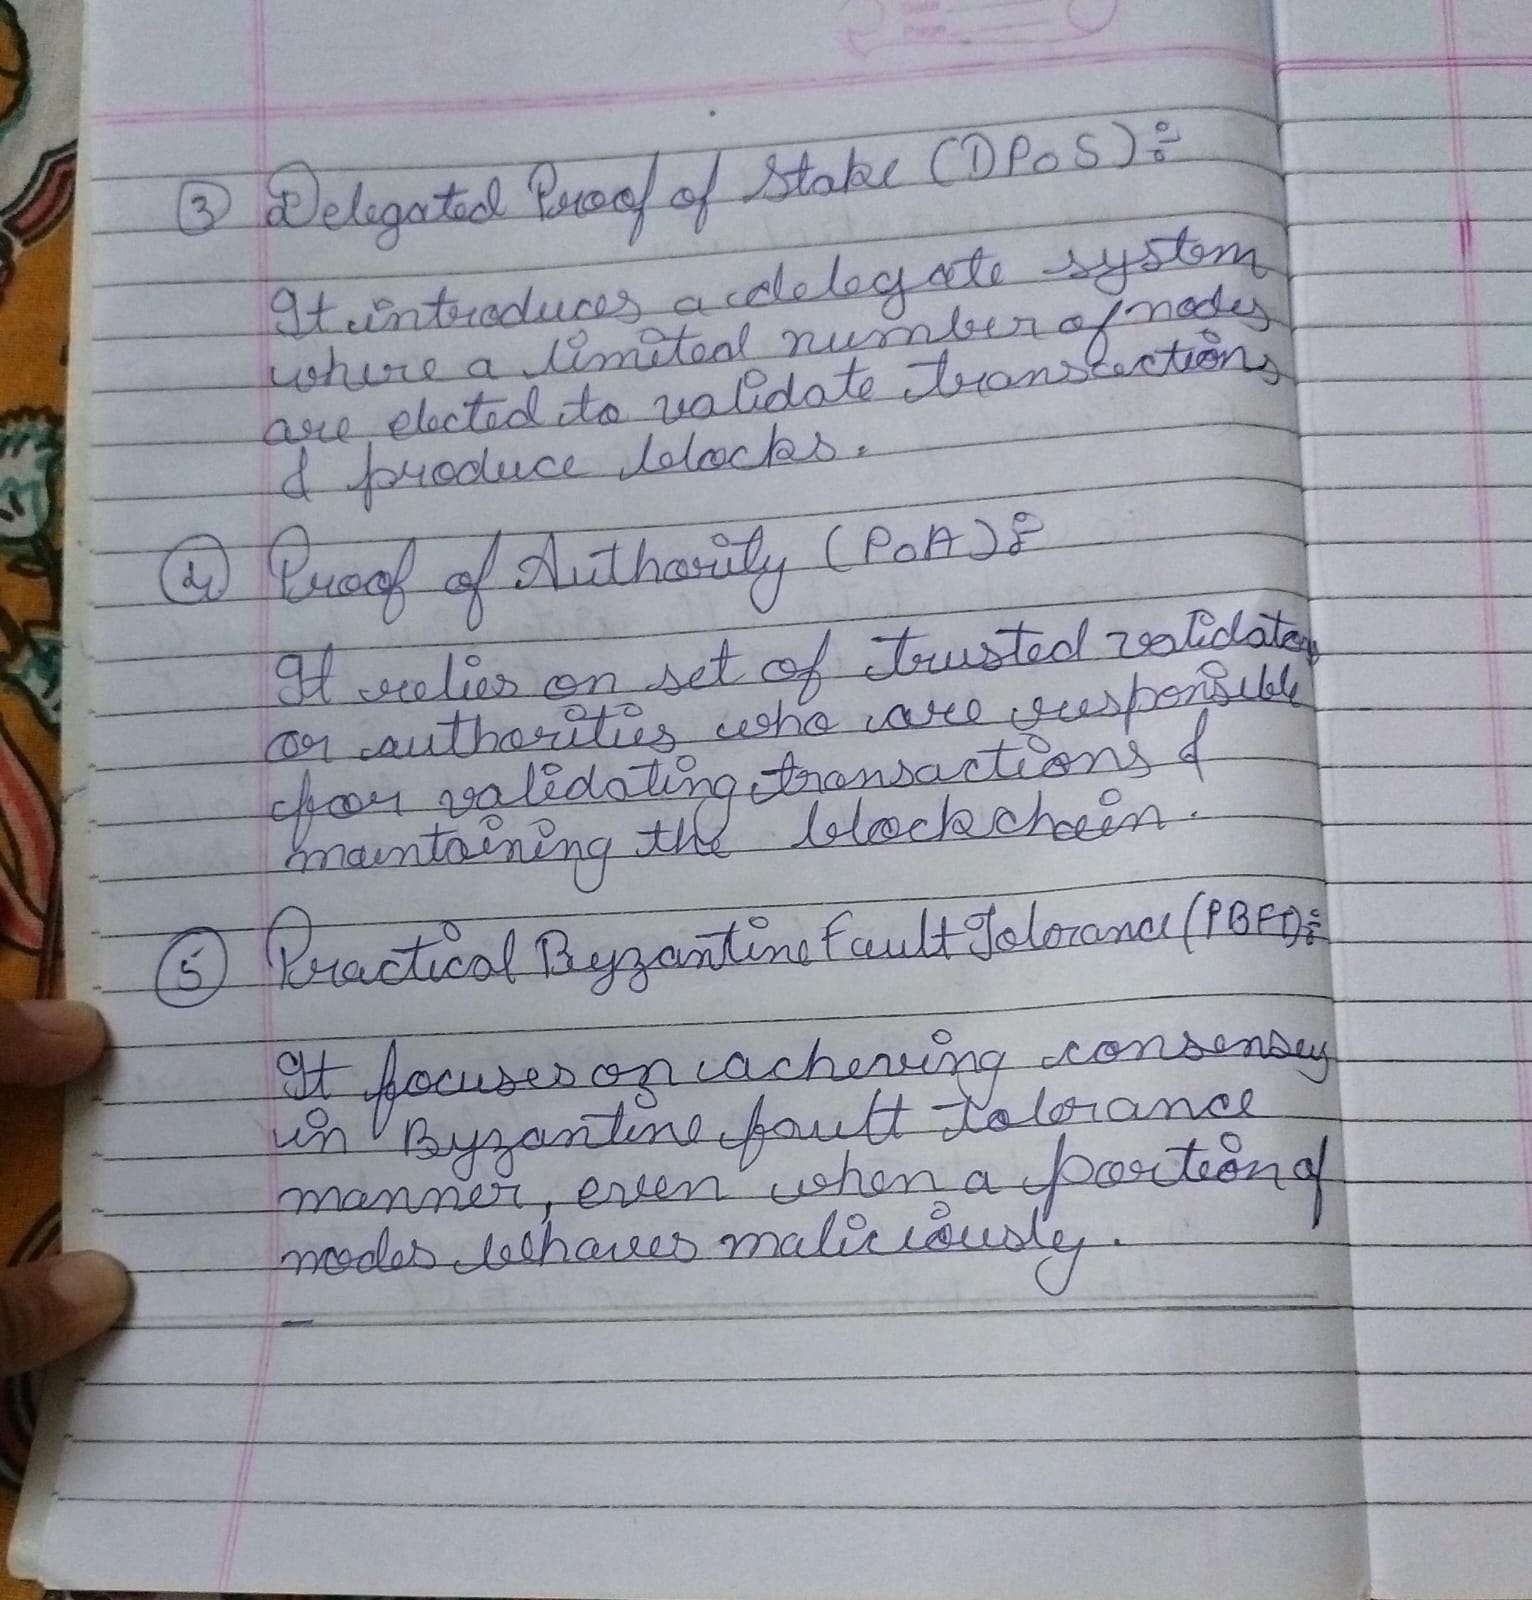 Date
Page
③ Delegated Proof of Stake (DPoS):
It introduces a delegate system
where a limited number of nodes
are elected to validate transactions
& produce blocks.
④ Proof of Authority (PoA):
It relies on set of trusted validators
or authorities who are responsible
for validating transactions &
maintaining the blockchain.
⑤ Practical Byzantine Fault Tolerance (PBFT):
It focuses on acheving consensus
in Byzantine fault tolerance
manner, even when a portion of
nodes behaves maliciously.